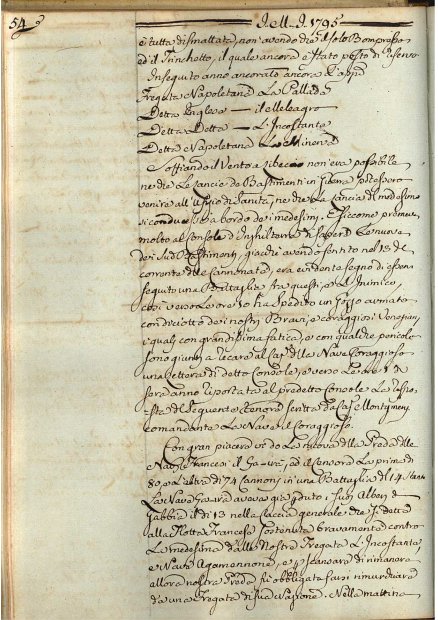 54.
1795
è tutta dismattata, non avendo che il solo Bompresso
ed il Trinchetto, il quale ancora è stato posto di riserva
In seguito anno ancorato ancora
Fregata Napoletana La Pallade
Detta Inglese — il Meleagro
Detta Detta — L'Incostante
Detta Napoletana La Minerva
Soffiando il Vento a libeccio non era possibile
ne che le Lancie da Bastimenti in libera potessero
venire all'Uffizio di Sanità, ne che la Lancia del medesimo
si conducesse a bordo dei medesimi. E siccome premeva
molto al Console d'Inghilterra di sapere le nuove
dei suoi Bastimenti, giacché avendo sentito nel 13 del
corrente delle Cannonate, era evidente segno di esser
seguito una Battaglia fra questi, e l'Inimico,
così verso le ore 10 ha spedito un Gozzo armato
con diciotto dei nostri Bravi, e coraggiosi Veneziani,
i quali con grandissima fatica, e con qualche pericolo
sono giunti a recare al Cap. della Nave Coraggioso
una lettera di detto Console, e verso le ore 1 di
sera anno riportata al predetto Console la
del seguente tenore scritta da Cap. Montgomery
comandante la Nave il Coraggioso.
Con gran piacere vi do la nuova della Preda delle
Navi Francesi il Ça-ira, ed il Censore la prima di
80 e l'altra di 74 Cannoni in una Battaglia del 14
La Nave Ça-ira aveva già perduto i suoi Alberi di
Gabbia il dì 13 nella Caccia generale che si dette
alla Flotta Francese sostenuta bravamente contro
la medesima dalla Nostra Fregata L'Incostante
e Nave Agamennone, e
allora nostra Preda fu obbligata farsi rimurchiare
da una Fregata di sua Nazione. Nella mattina